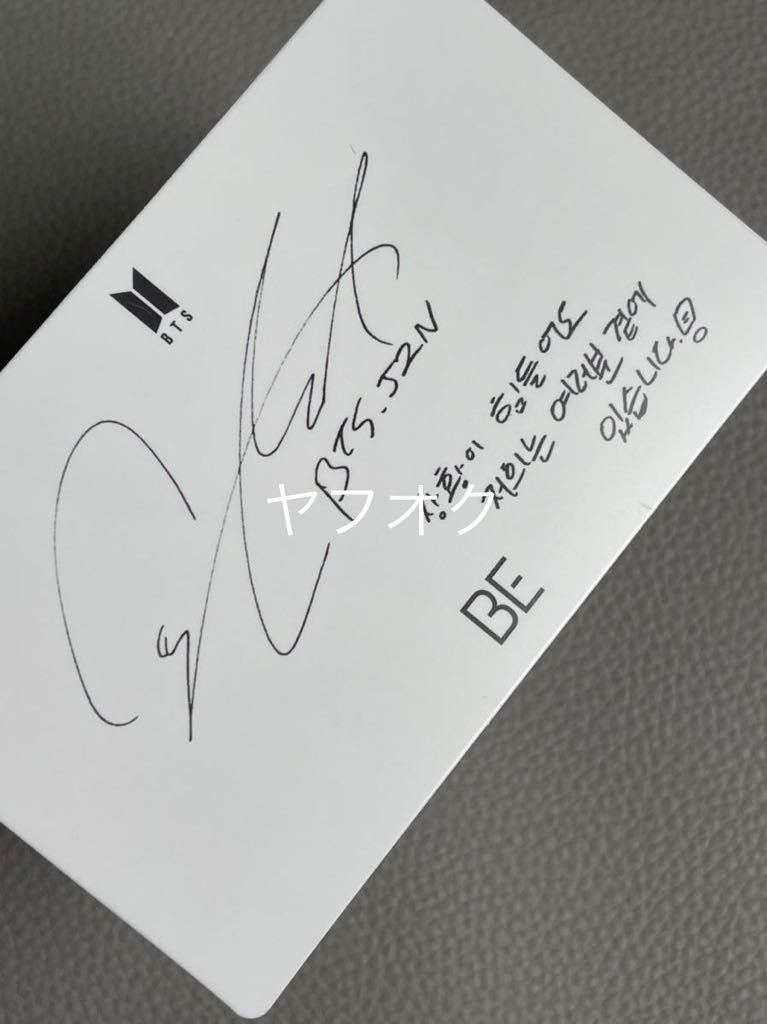 BTS
BTS.JIN
상황이 힘들어도
저희는 여러분 곁에
있습니다.
BE
ヤフオク